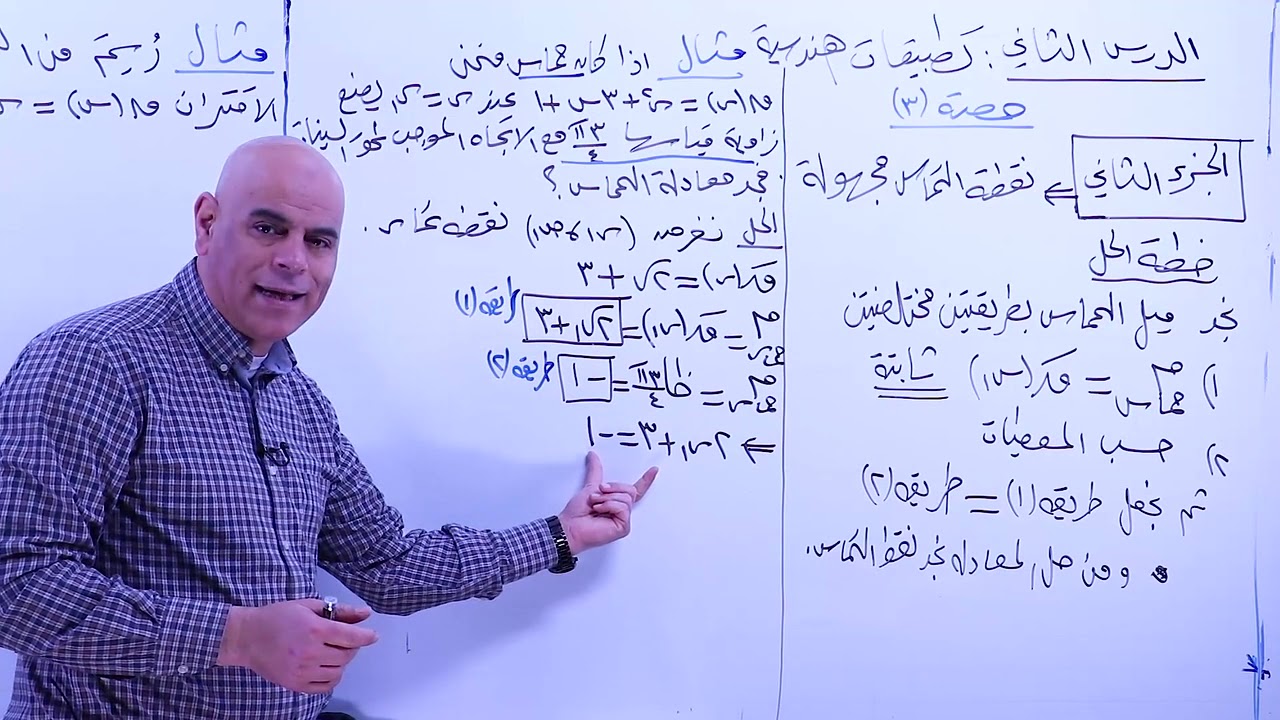 الدرس الثاني: تطبيقات هندسية
حصة (٣)
الجزء الثاني ⇐ نقطة التماس مجهولة
خطة الحل
نجد ميل المماس بطريقتين مختلفتين
١) م مماس = قَ(س١) ثابتة
٢) حسب المعطيات
ثم نجعل طريقة (١) = طريقة (٢)
• ومن حل المعادلة نجد نقط التماس.
مثال اذا كان مماس منحنى
ق(س) = س٢ + ٣س + ١ عند س = س١ يصنع
زاوية قياسها ٣π/٤ مع الاتجاه الموجب لمحور السينات
فجد معادلة المماس؟
الحل نفرض (س١، ص١) نقطة تماس.
قَ(س) = ٢س + ٣
م مماس = قَ(س١) = ٢س١ + ٣ طريقة (١)
م مماس = ظا ٣π/٤ = -١ طريقة (٢)
⇐ ٢س١ + ٣ = -١
مثال رُسِمَ من
الاقتران ق(س) =